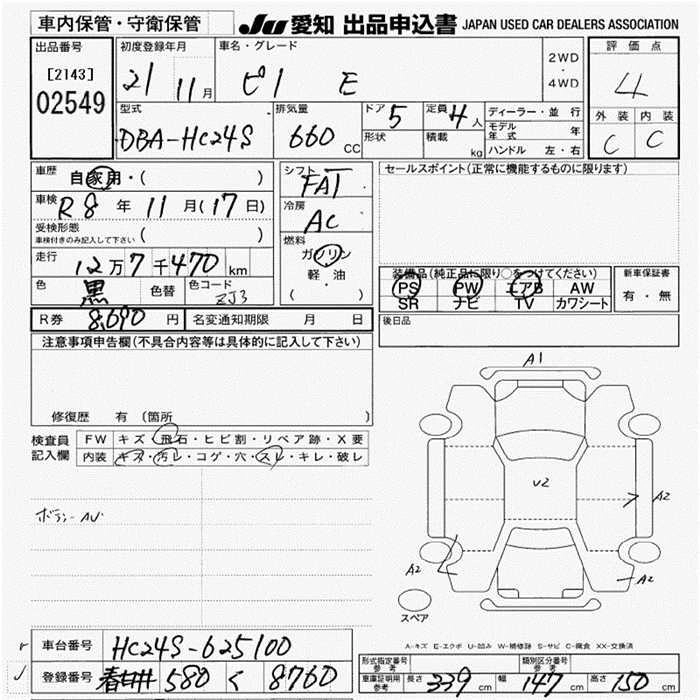 車内保管・守衛保管 JU 愛知 出品申込書 JAPAN USED CAR DEALERS ASSOCIATION
出品番号 [2143] 02549
初度登録年月 21 11月
車名・グレード ピノ E
2WD・4WD
評価点 4
外装 C 内装 C
型式 DBA-HC24S
排気量 660 CC
ドア 5
形状
定員 4人
積載 kg
ディーラー・並行
モデル年式 年
ハンドル 左・右
車歴 自家用・( )
車検 R8年 11月(17日)
受検形態 ( )
車検付きのみ記入して下さい
走行 12万7千470km
色 黒 色替 色コード ZJ3
シフト FAT
冷房 AC
燃料 ガソリン
軽・油
( )
セールスポイント(正常に機能するものに限ります)
装備品(純正品に限り○をつけてください)
PS PW エアB AW
SR ナビ TV カワシート
新車保証書
有・無
R券 8,690円 名変通知期限 月 日
後日品
注意事項申告欄(不具合内容等は具体的に記入して下さい)
修復歴 有(箇所 )
検査員記入欄
FW キズ・飛石・ヒビ割・リペア跡・X要
内装 キズ・汚レ・コゲ・穴・スレ・キレ・破レ
A1
U2
A2
A2
A2
スペア
A-キズ E-エクボ U-凹み W-補修跡 S-サビ C-腐食 XX-交換済
車台番号 HC24S-625100
登録番号 春日井 580 く 8760
形式指定番号 参考
類別区分番号 参考
車庫証明用 参考 長さ 339cm 幅 147cm 高さ 150cm